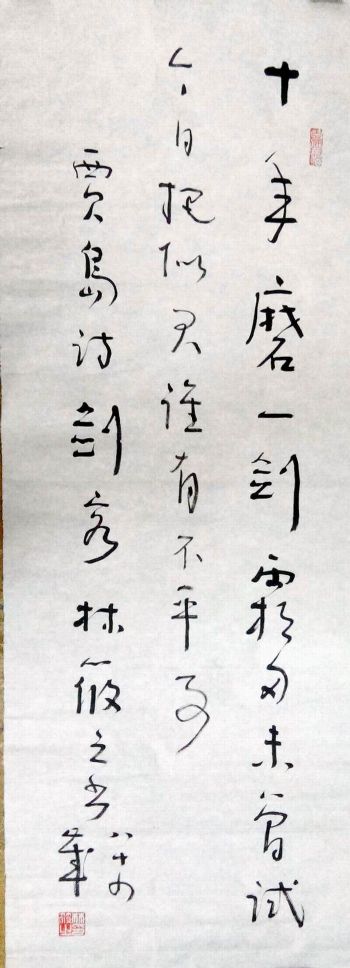 十年磨一剑霜刃未曾试
今日把似君谁有不平事
賈島诗剑客林筱之书八十四歲